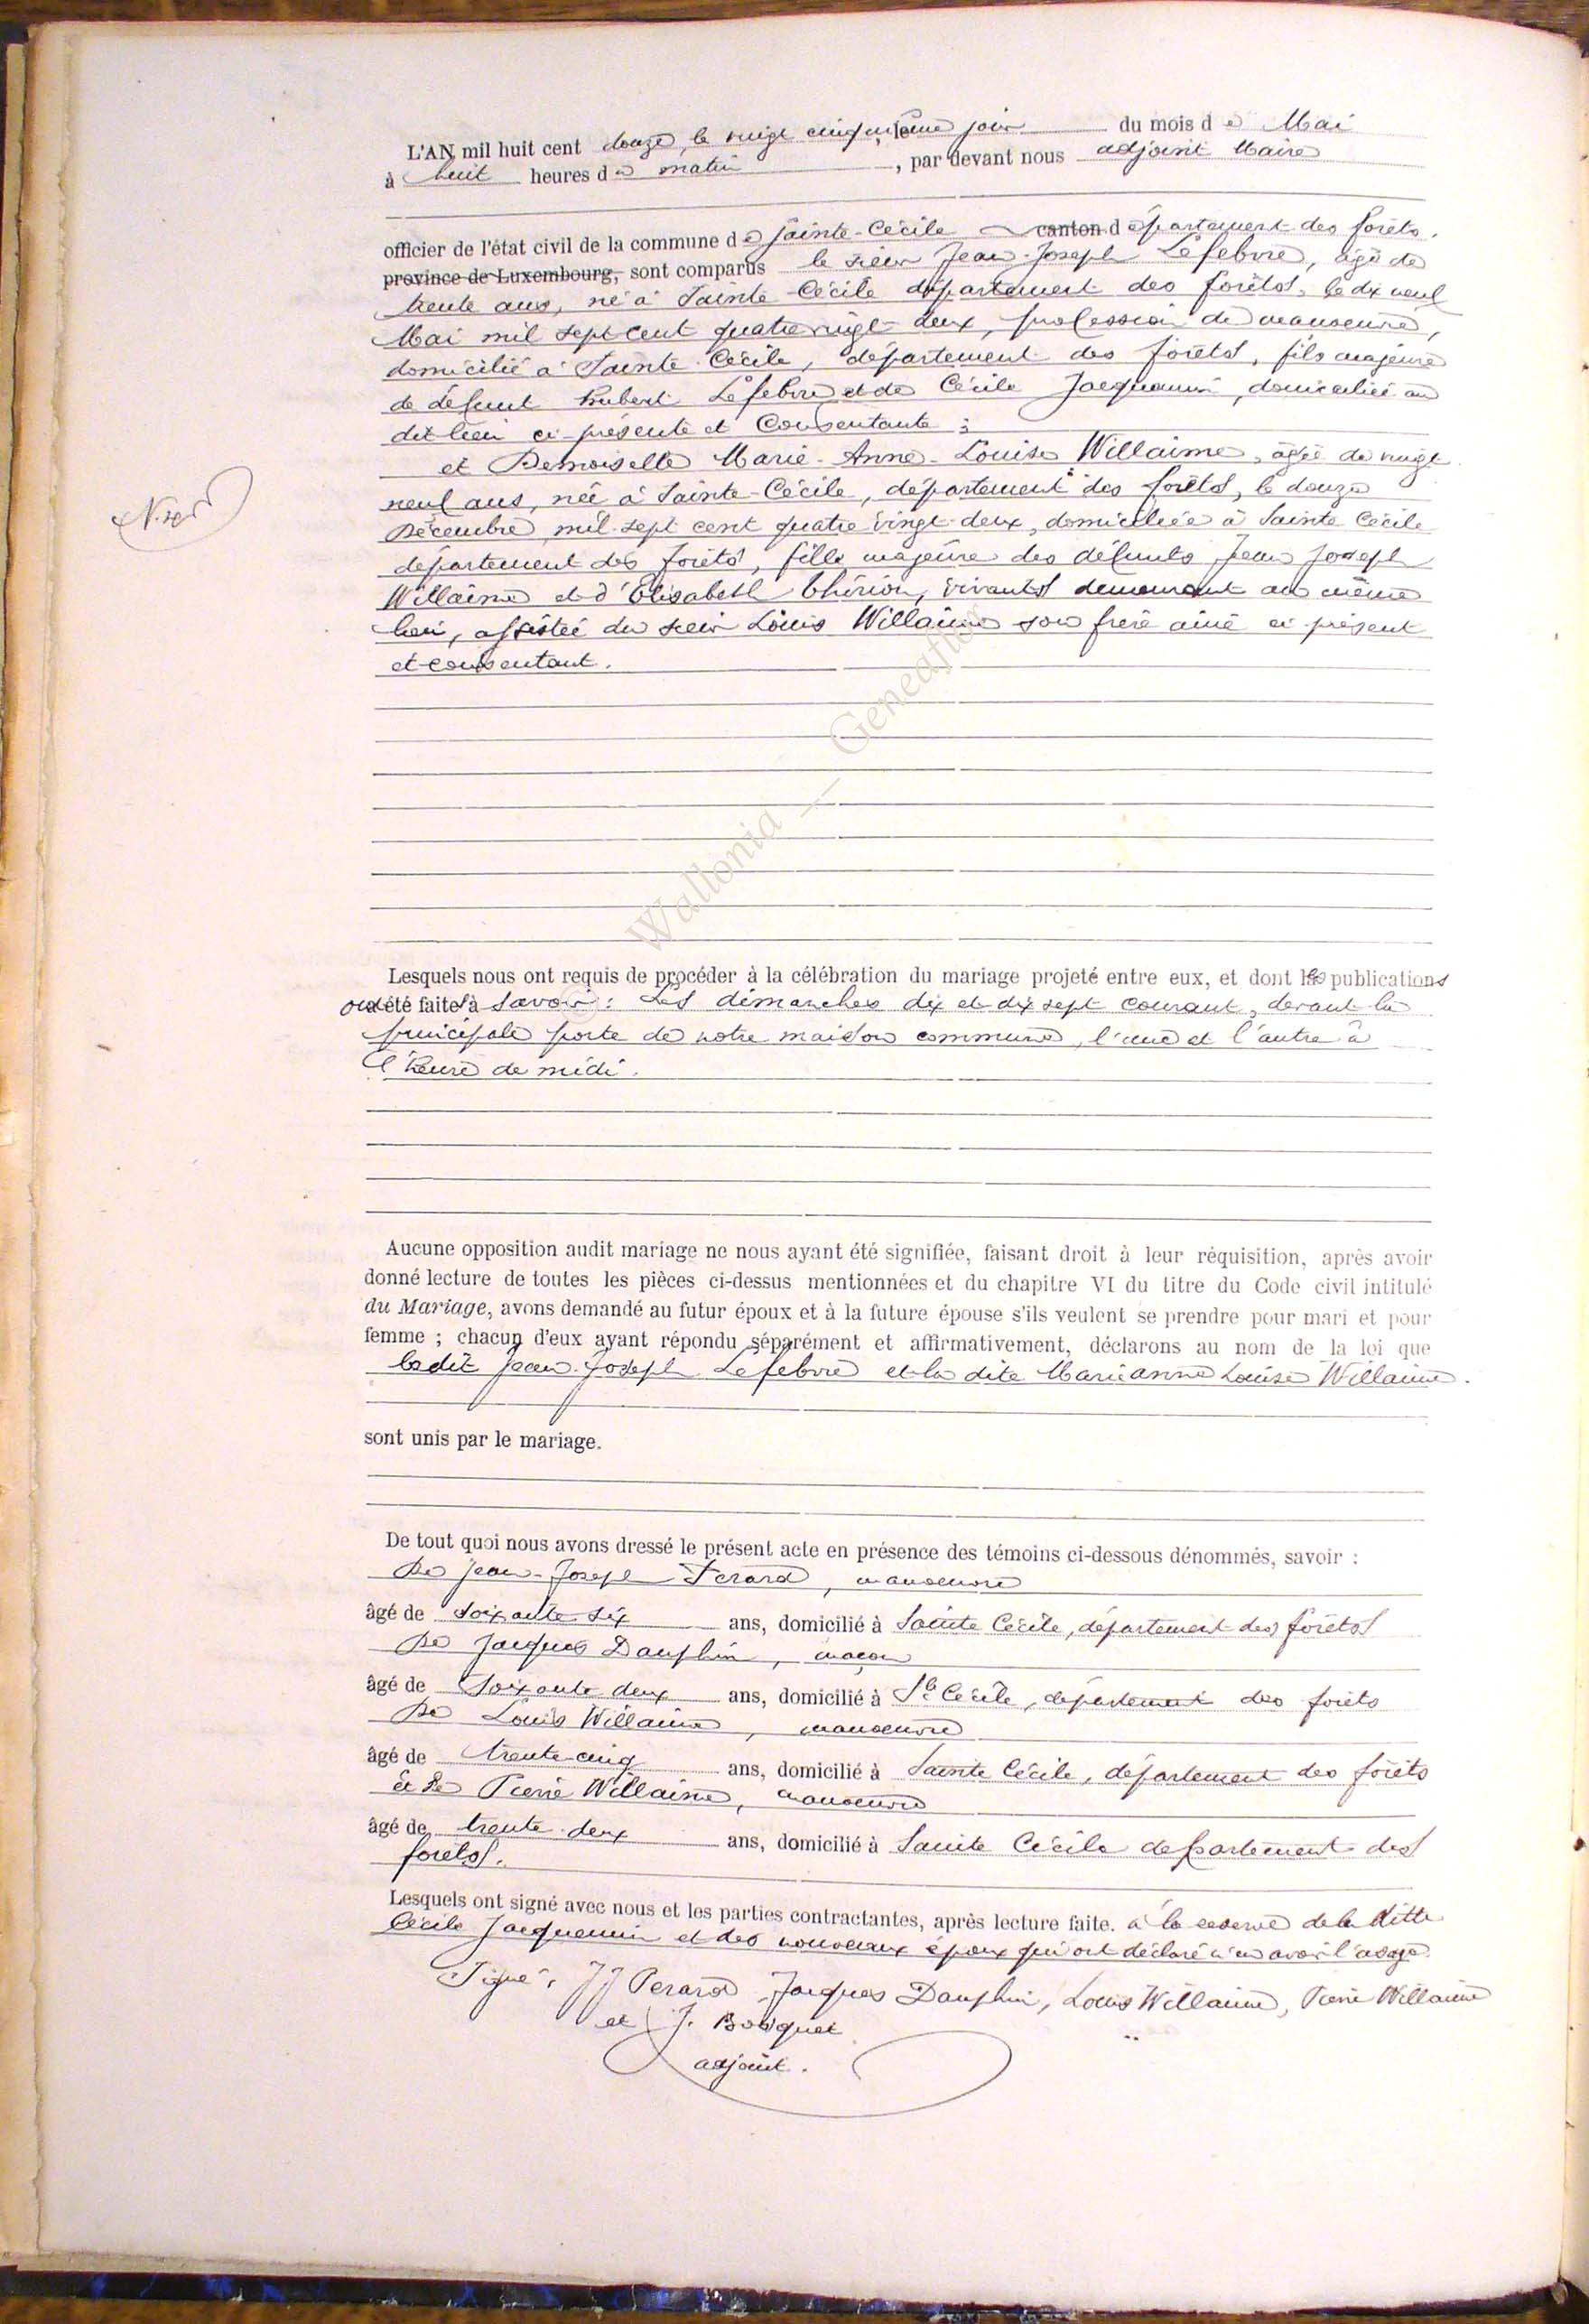 L'AN mil huit cent douze, le vingt cinquième jour du mois de Mai
à huit heures du matin, par devant nous adjoint Maire
officier de l'état civil de la commune de Sainte-Cécile canton département des forêts.
province de Luxembourg, sont comparus le sieur Jean-Joseph Lefebvre, âgé de
trente ans, né à Sainte-Cécile département des forêts, le dix neuf
Mai mil sept cent quatre vingt-deux, profession de manœuvre,
domicilié à Sainte Cécile, département des forêts, fils majeure
de défunt Hubert Lefebvre et de Cécile Jacquemin, domiciliée au
dit lieu ci-présente et Consentante ;
et Demoiselle Marie-Anne-Louise Willaime, âgée de vingt
neuf ans, née à Sainte-Cécile, département des forêts, le douze
Décembre mil-sept cent quatre vingt-deux, domiciliée à Sainte Cécile
département des forêts, fille majeure des défunts Jean Joseph
Willaime et d'Élisabeth Thirion, vivants demeurant au même
lieu, assistée du sieur Louis Willaime son frère ainé ci-présent
et consentant.
N. 
Wallonia — Geneaflor
©
Lesquels nous ont requis de procéder à la célébration du mariage projeté entre eux, et dont les publications
ont été faites à savoir : Les dimanches dix et dix sept courant, devant la
principale porte de notre maison commune, l'une et l'autre à
l'heure de midi.
Aucune opposition audit mariage ne nous ayant été signifiée, faisant droit à leur réquisition, après avoir
donné lecture de toutes les pièces ci-dessus mentionnées et du chapitre VI du titre du Code civil intitulé
du Mariage, avons demandé au futur époux et à la future épouse s'ils veulent se prendre pour mari et pour
femme ; chacun d'eux ayant répondu séparément et affirmativement, déclarons au nom de la loi que
le dit Jean-Joseph Lefebvre et la dite Marie anne Louise Willaime.
sont unis par le mariage.
De tout quoi nous avons dressé le présent acte en présence des témoins ci-dessous dénommés, savoir :
De Jean-Joseph Perard, manœuvre
âgé de soixante six ans, domicilié à Sainte Cécile, département des forêts
De Jacques Dauphin, maçon
âgé de Soixante deux ans, domicilié à Ste Cécile, département des forêts
De Louis Willaime, manœuvre
âgé de trente-cinq ans, domicilié à Sainte Cécile, département des forêts
et De Pierre Willaime, manœuvre
âgé de trente-deux ans, domicilié à Sainte Cécile département des
forêts.
Lesquels ont signé avec nous et les parties contractantes, après lecture faite. à la réserve de la ditte
Cécile Jacquemin et des nouveaux époux qui ont déclaré n'en avoir l'usage.
Signé, JJ Perard Jacques Dauphin, Louis Willaime, Pierre Willaime
et J. Bosquet
adjoint.